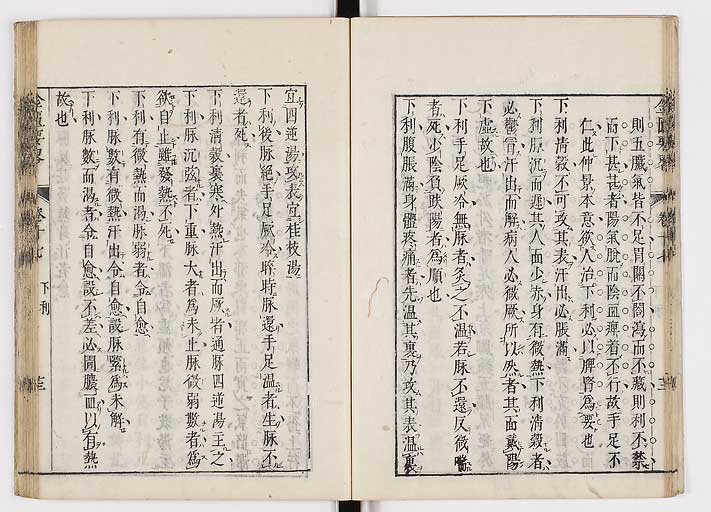 則五臟氣皆不足胃關不闔瀉而不藏則利不禁
而下甚甚者陽氣脫而陰血痺着不行故手足不
仁此仲景本意欲人治下利必以脾腎為要也
下利清穀不可攻其表汗出必脹滿
下利脉沉而遲其人面少赤身有微熱下利清穀者
必鬱冒汗出而解病人必微厥所以然者其面戴陽
下虛故也
下利手足厥冷無脉者灸之不溫若脉不還反微喘
者死少陰負趺陽者為順也
下利腹脹滿身體疼痛者先溫其裏乃攻其表溫裏
金匱要畧 卷十七 下利
宜四逆湯攻表宜桂枝湯
下利後脉絕手足厥冷晬時脉還手足溫者生脉不
還者死
下利清穀裏寒外熱汗出而厥者通脉四逆湯主之
下利脉沉弦者下重脉大者為未止脉微弱數者為
欲自止雖發熱不死
下利有微熱而渴脉弱者令自愈
下利脉數有微熱汗出令自愈設脉緊為未解
下利脉數而渴者令自愈設不差必圊膿血以有熱
故也